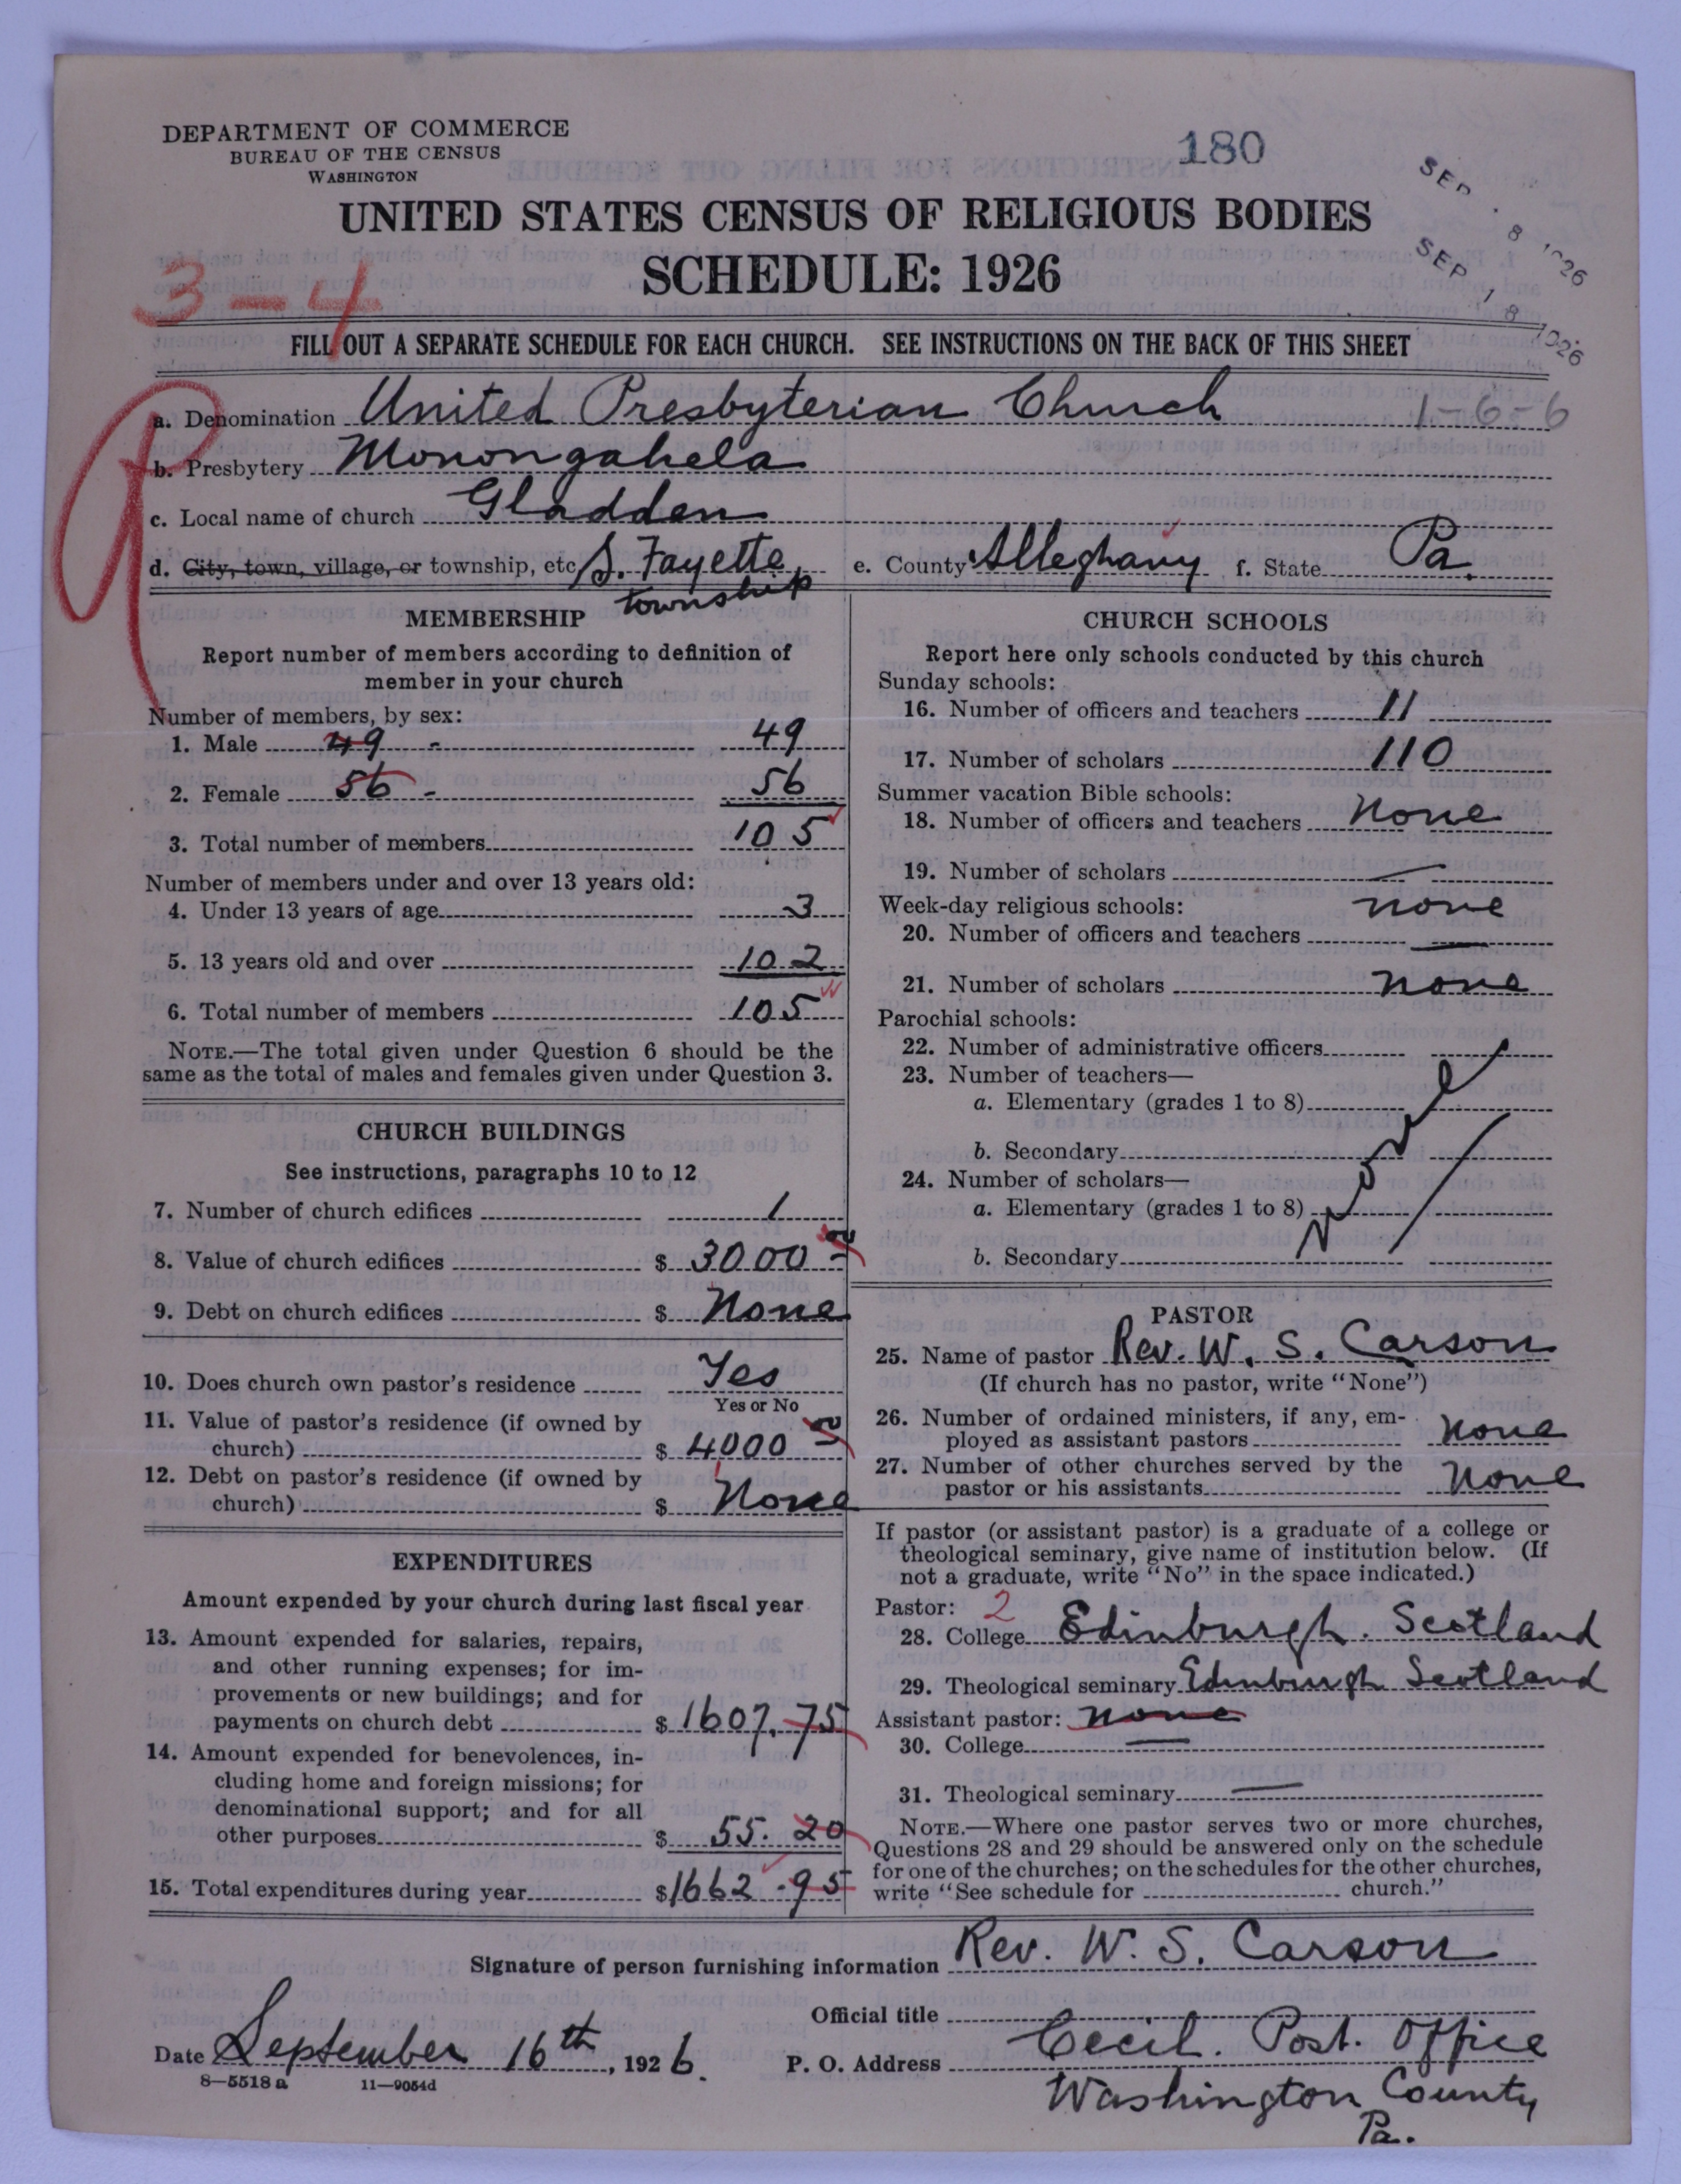 DEPARTMENT OF COMMERCE
BUREAU OF THE CENSUS
WASHINGTON
180
SEP 8 1926
SEP 18 1926
UNITED STATES CENSUS OF RELIGIOUS BODIES
SCHEDULE: 1926
3-4
FILL OUT A SEPARATE SCHEDULE FOR EACH CHURCH. SEE INSTRUCTIONS ON THE BACK OF THIS SHEET
a. Denomination United Presbyterian Church 1-6-6
b. Presbytery Monongahela
c. Local name of church Gladden
d. City, town, village, or township, etc. S. Fayette township e. County Alleghany f. State Pa.
MEMBERSHIP
Report number of members according to definition of
member in your church
Number of members, by sex:
1. Male 49 - 49
2. Female 56 - 56
3. Total number of members 105
Number of members under and over 13 years old:
4. Under 13 years of age 3
5. 13 years old and over 102
6. Total number of members 105
NOTE.—The total given under Question 6 should be the
same as the total of males and females given under Question 3.
CHURCH BUILDINGS
See instructions, paragraphs 10 to 12
7. Number of church edifices 1
8. Value of church edifices $ 3000 00
9. Debt on church edifices $ None
10. Does church own pastor's residence Yes
Yes or No
11. Value of pastor's residence (if owned by
church) $ 4000 00
12. Debt on pastor's residence (if owned by
church) $ None
EXPENDITURES
Amount expended by your church during last fiscal year
13. Amount expended for salaries, repairs,
and other running expenses; for im-
provements or new buildings; and for
payments on church debt $ 1607.75
14. Amount expended for benevolences, in-
cluding home and foreign missions; for
denominational support; and for all
other purposes $ 55.20
15. Total expenditures during year $1662.95
CHURCH SCHOOLS
Report here only schools conducted by this church
Sunday schools:
16. Number of officers and teachers 11
17. Number of scholars 110
Summer vacation Bible schools:
18. Number of officers and teachers None
19. Number of scholars —
Week-day religious schools: none
20. Number of officers and teachers —
21. Number of scholars none
Parochial schools:
22. Number of administrative officers
23. Number of teachers—
a. Elementary (grades 1 to 8)
b. Secondary
24. Number of scholars—
a. Elementary (grades 1 to 8)
b. Secondary
None
PASTOR
25. Name of pastor Rev. W. S. Carson
(If church has no pastor, write "None")
26. Number of ordained ministers, if any, em-
ployed as assistant pastors None
27. Number of other churches served by the
pastor or his assistants None
If pastor (or assistant pastor) is a graduate of a college or
theological seminary, give name of institution below. (If
not a graduate, write "No" in the space indicated.)
Pastor: 2
28. College Edinburgh. Scotland
29. Theological seminary Edinburgh Scotland
Assistant pastor: none
30. College —
31. Theological seminary —
NOTE.—Where one pastor serves two or more churches,
Questions 28 and 29 should be answered only on the schedule
for one of the churches; on the schedules for the other churches,
write "See schedule for church."
Signature of person furnishing information Rev. W. S. Carson
Official title
Date September 16th, 1926. P. O. Address Cecil. Post. Office
Washington County
Pa.
8—5518a 11—9054d